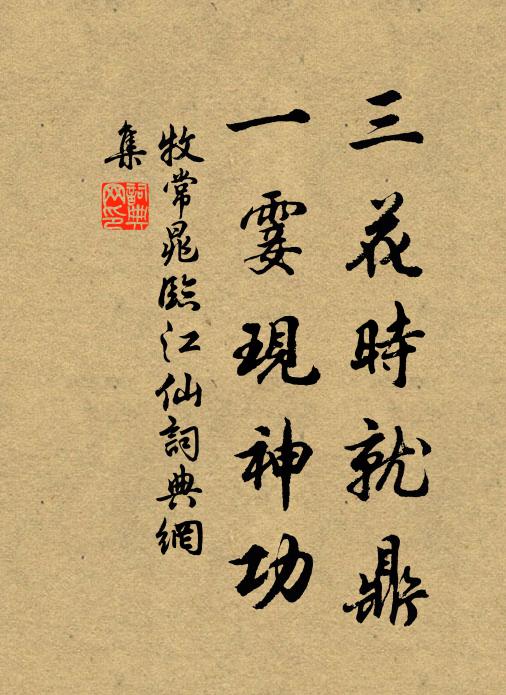 三花時就鼎
一霎現神功
牧常晁臨江仙詞典網
集
詞典網印